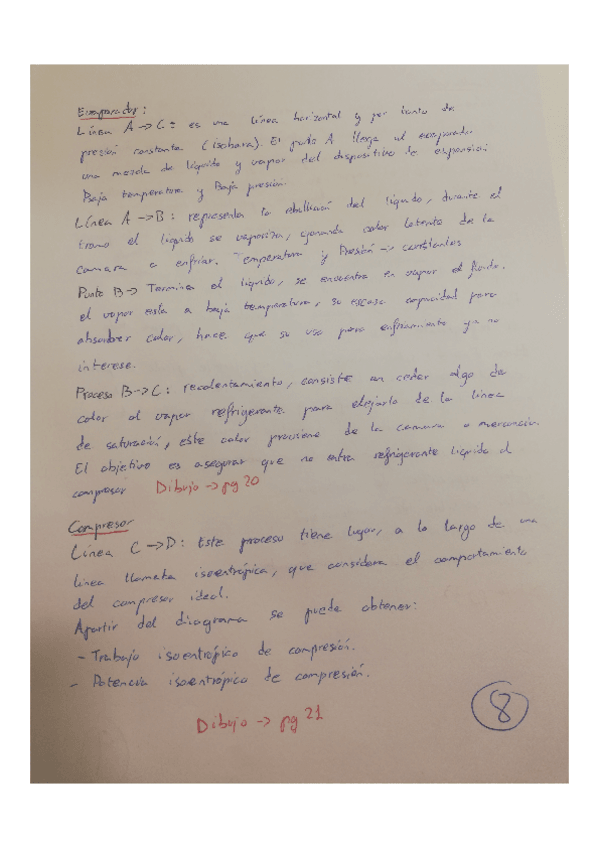 Evaporador:
Línea A->C: es una línea horizontal y por tanto de
presión constante (isobara). El punto A llega al evaporador
una mezcla de líquido y vapor del dispositivo de expansión
Baja temperatura y Baja presión.
Línea A->B: representa la ebullición del líquido, durante el
tramo el líquido se vaporiza, calor latente de la
camara a enfriar. Temperatura y Presión -> constantes
Punto B-> Termina el líquido, se encuentra en vapor el fluido.
el vapor esta a baja temperatura, su escasa capacidad para
absorber calor, hace que su uso para enfriamiento ya no
interese.
Proceso B->C: recalentamiento, consiste en ceder algo de
calor al vapor refrigerante para alejarlo de la línea
de saturación, este calor proviene de la camara o mercancía.
El objetivo es asegurar que no entra refrigerante líquido al
compresor Dibujo -> pg 20
Compresor
Línea C->D: Este proceso tiene lugar, a lo largo de una
línea llamada isoentrópica, que considera el comportamiento
del compresor ideal.
Apartir del diagrama se puede obtener:
- Trabajo isoentrópico de compresión.
- Potencia isoentrópica de compresión.
Dibujo -> pg 21
8